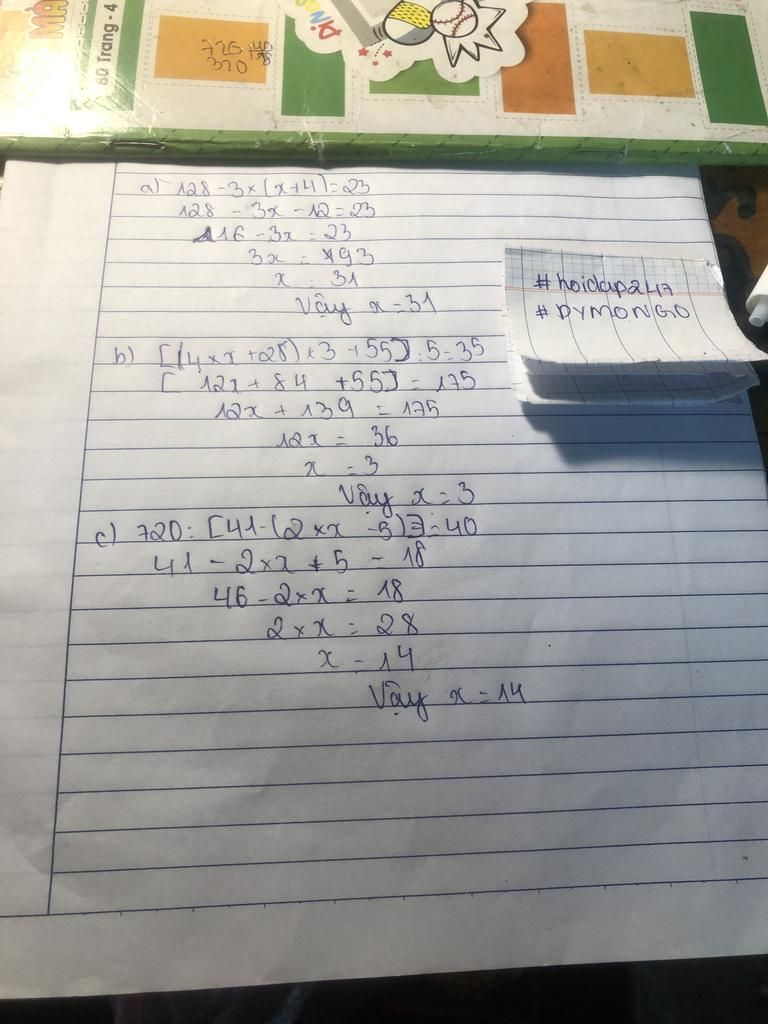 MÀ
80 Trang - 4
720 40
320
a) 128 - 3 × (x+4) = 23
128 - 3x - 12 = 23
116 - 3x = 23
3x = 93
x = 31
Vậy x = 31
#hoidap247
#DYMONGO
b) [(4 × x + 28) × 3 + 55] : 5 = 35
[ 12x + 84 + 55] = 175
12x + 139 = 175
12x = 36
x = 3
Vậy x = 3
c) 720 : [41 - (2 × x - 5)] = 40
41 - 2 × x + 5 = 18
46 - 2 × x = 18
2 × x = 28
x = 14
Vậy x = 14